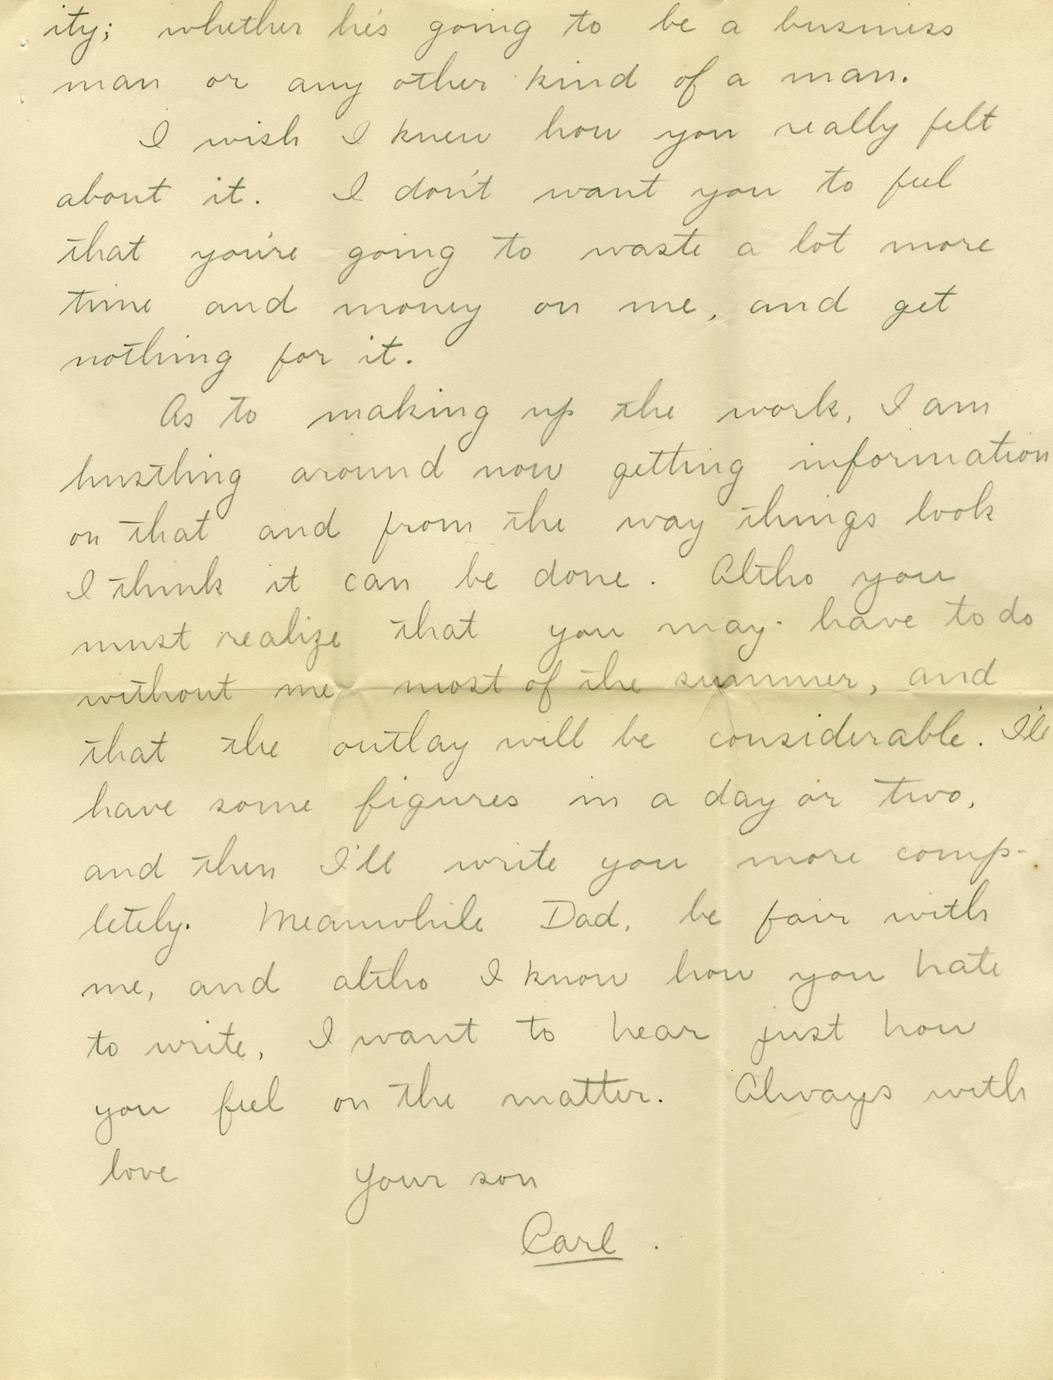 ity; whether he's going to be a business
man or any other kind of a man.
I wish I knew how you really felt
about it. I don't want you to feel
that you're going to waste a lot more
time and money on me, and get
nothing for it.
As to making up the work, I am
hustling around now getting information
on that and from the way things look
I think it can be done. Altho you
must realize that you may have to do
without me most of the summer, and
that the outlay will be considerable. I'll
have some figures in a day or two,
and then I'll write you more comp-
letely. Meanwhile Dad, be fair with
me, and altho I know how you hate
to write, I want to hear just how
you feel on the matter. Always with
love Your son
Carl.